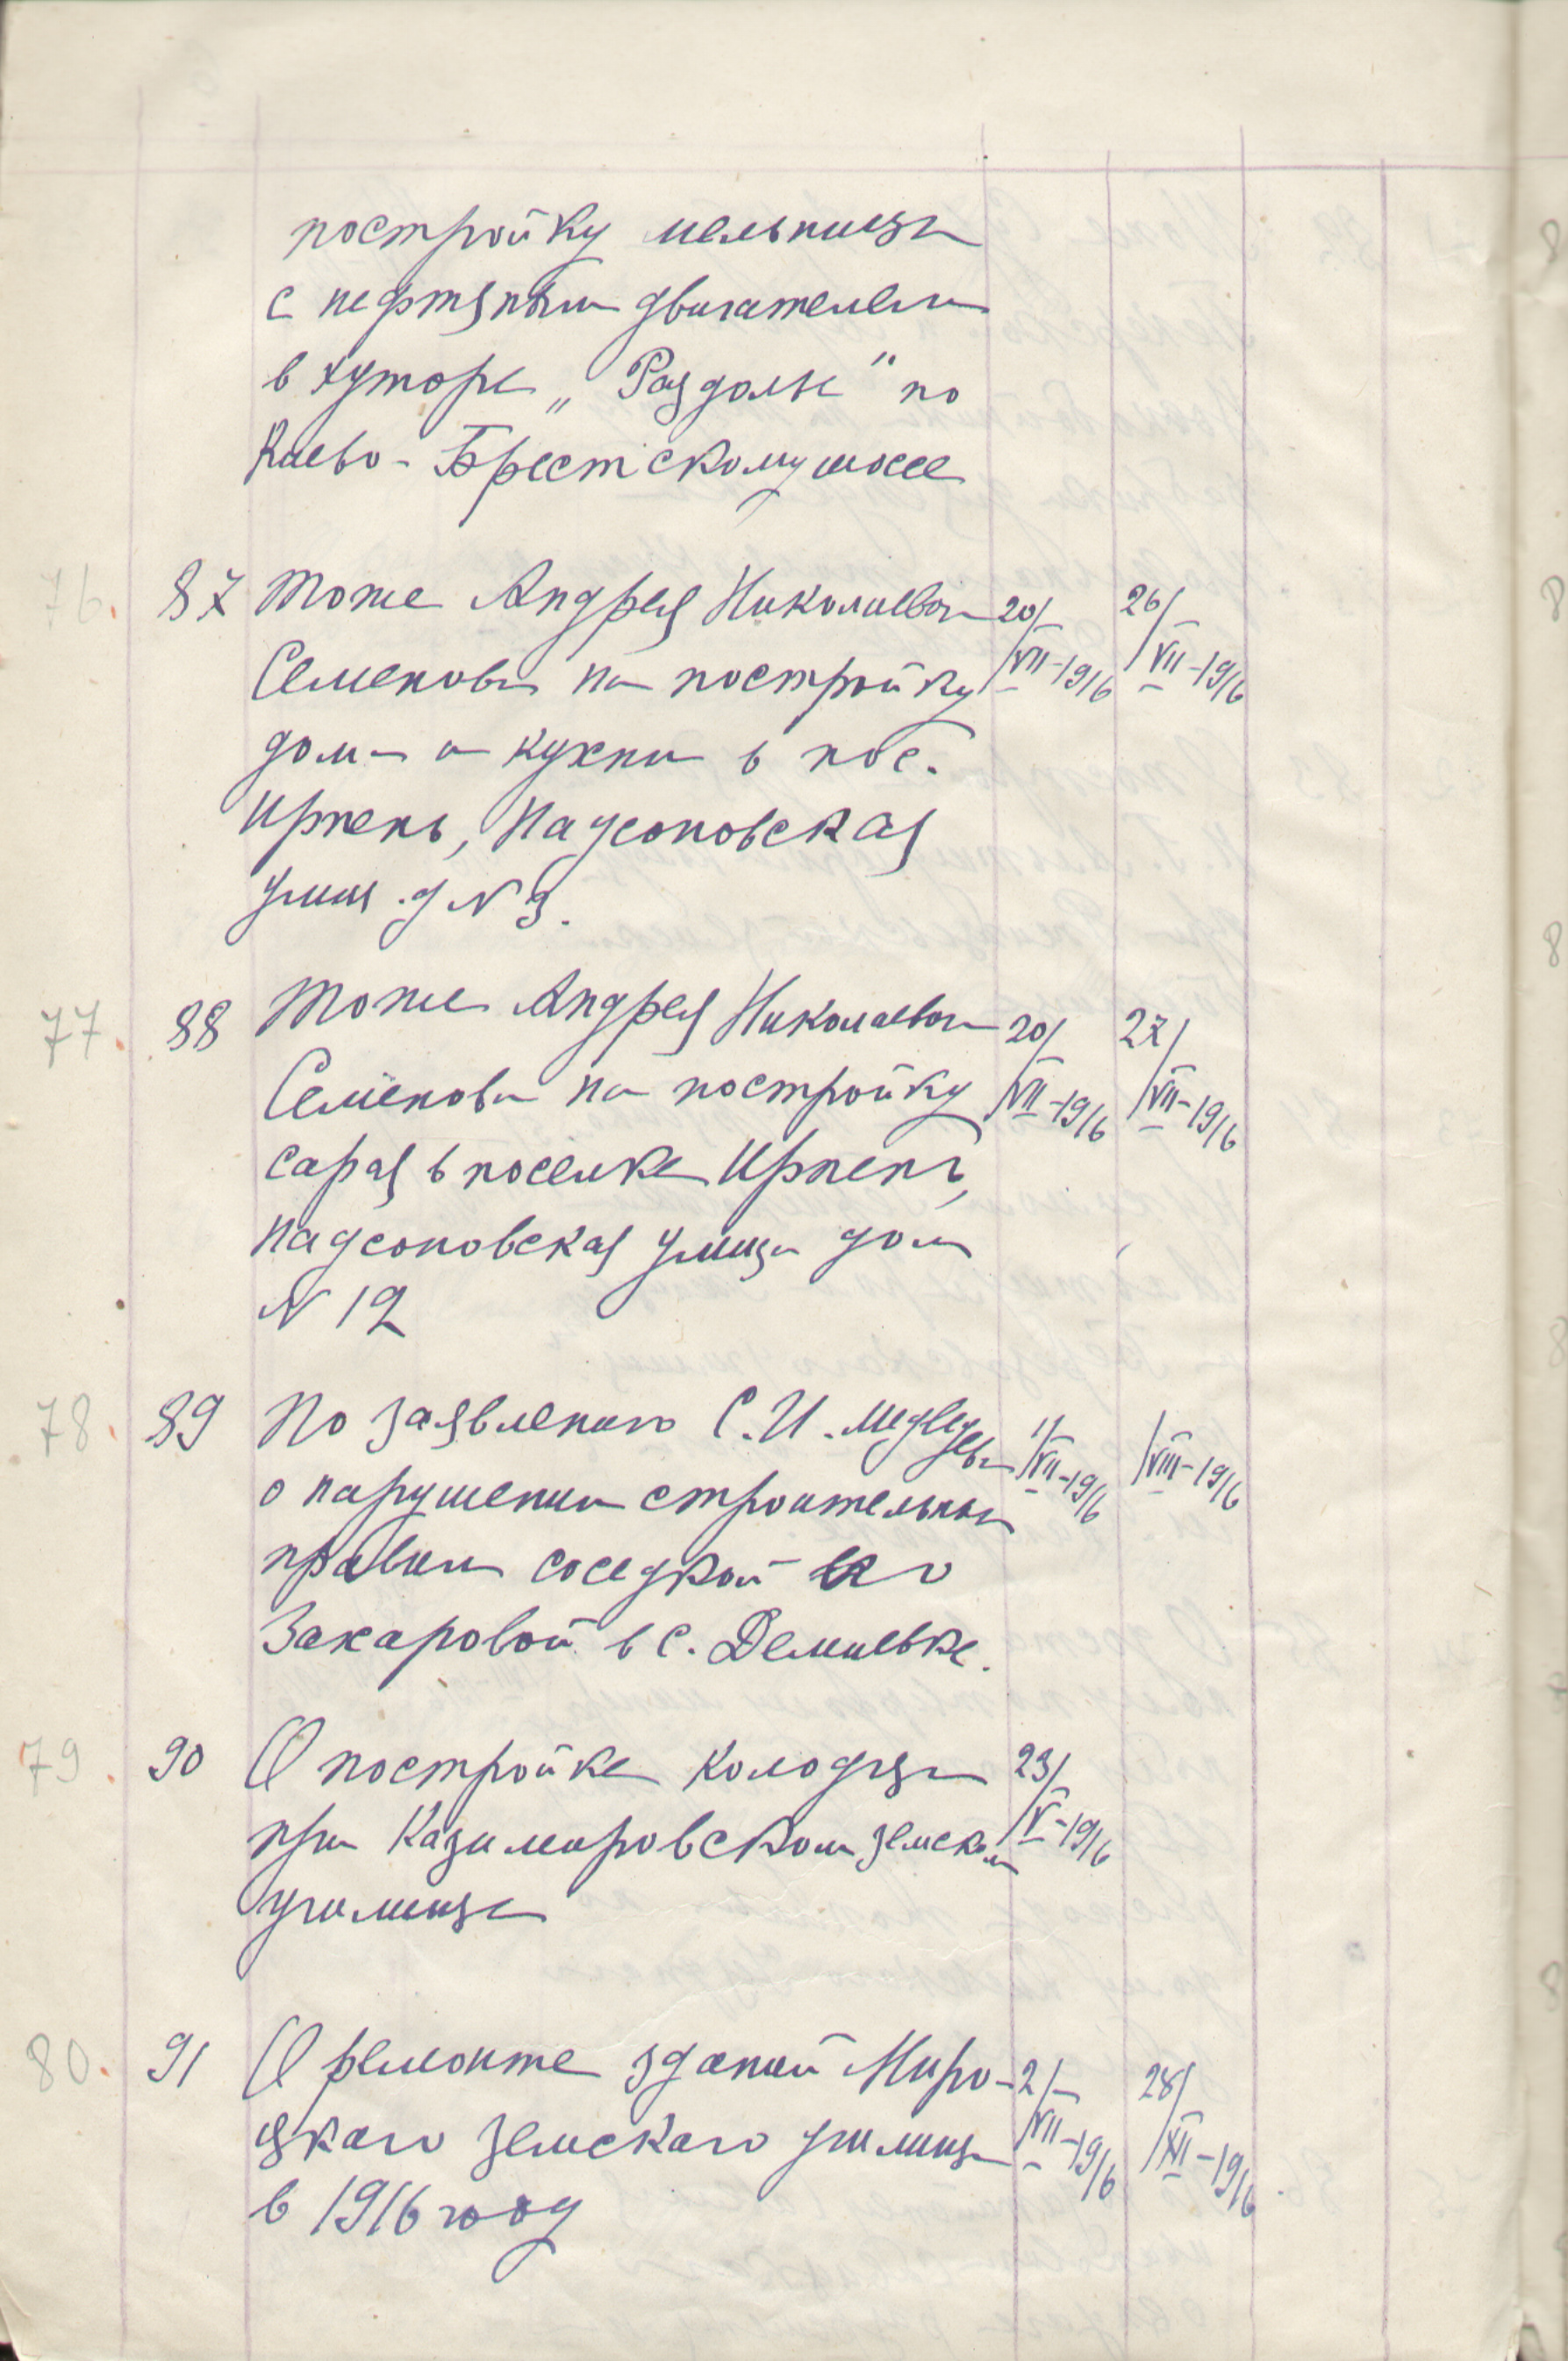 постройку мельницы
с нефтяным двигателем
в хуторе „Раздолье" по
Киево-Брестскому шоссе
76. 87 Тоже Андрея Николаевича 20/VII-1916 26/VII-1916
Семенова на постройку
дома и кухни в пос.
Ирпень, Надсоновская
улица д N 3.
77. 88 Тоже Андрея Николаевича 20/VII-1916 27/VII-1916
Семёнова на постройку
сарая в посёлке Ирпень,
Надсоновская улица дом
N 12
78. 89 По заявлению С.И. Медведева 1/VII-1916 /VIII-1916
о нарушении строительных
правил соседкой его
Захаровой в с. Демиевке.
79. 90 О постройке колодца 23/V-1916
при Казимировском земском
училище
80. 91 О ремонте зданий Миро- 2/VII-1916 28/XI-1916
цкаго земскаго училища
в 1916 году